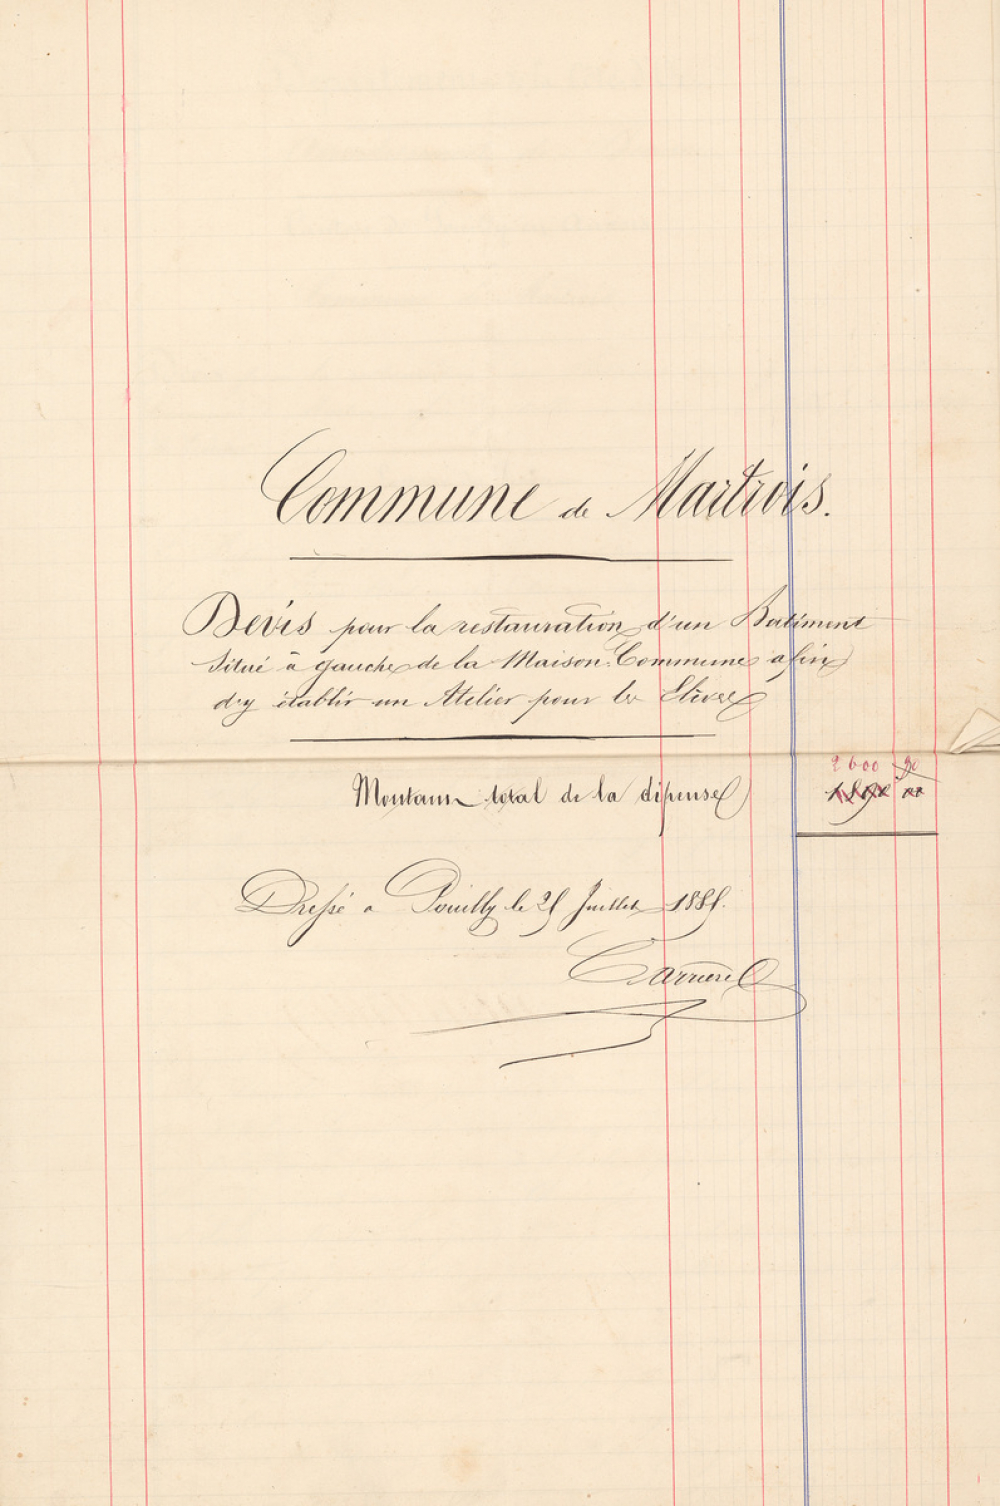 Commune de Martrois.
Devis pour la restauration d'un Batiment
Situé à gauche de la Maison-Commune afin
d'y établir un Atelier pour les Elèves
2600
Montant total de la dépense
Dressé a Pouilly le Juillet
Carrière